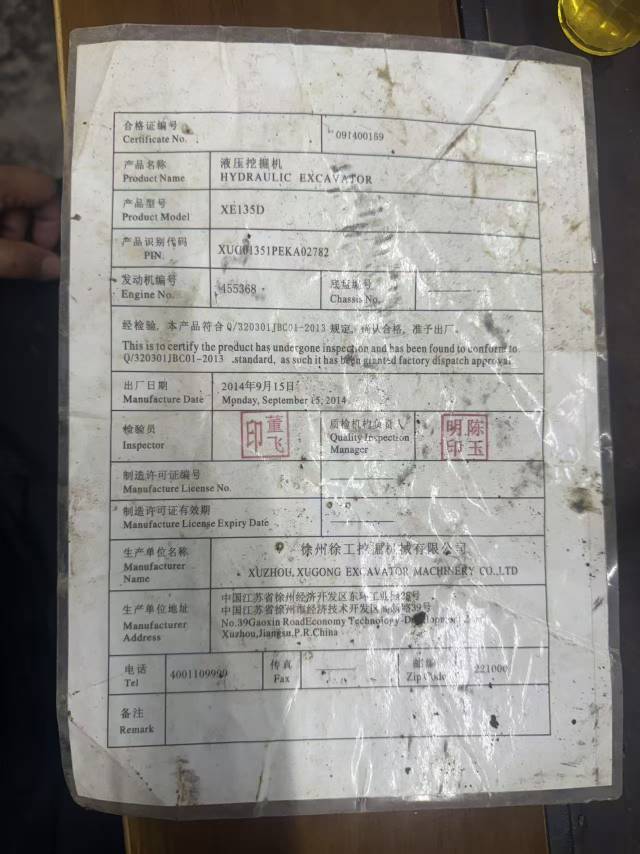 合格证编号
Certificate No.
091400159
产品名称
Product Name
液压挖掘机
HYDRAULIC EXCAVATOR
产品型号
Product Model
XE135D
产品识别代码
PIN.
XUG01351PEKA02782
发动机编号
Engine No.
455368
底盘编号
Chassis No.
经检验，本产品符合 Q/320301JBC01-2013 规定，确认合格，准予出厂。
This is to certify the product has undergone inspection and has been found to conform to
Q/320301JBC01-2013 .standard, as such it has been granted factory dispatch approval.
出厂日期
Manufacture Date
2014年9月15日
Monday, September 15, 2014
检验员
Inspector
董飞印
质检机构负责人
Quality Inspection
Manager
陈玉明印
制造许可证编号
Manufacture License No.
制造许可证有效期
Manufacture License Expiry Date
生产单位名称
Manufacturer
Name
徐州徐工挖掘机械有限公司
XUZHOU XUGONG EXCAVATOR MACHINERY CO.,LTD
生产单位地址
Manufacturer
Address
中国江苏省徐州经济开发区东环工业园28号
中国江苏省徐州市经济技术开发区高新路39号
No.39Gaoxin RoadEconomy Technology Development
Xuzhou,Jiangsu,P.R.China
电话
Tel
4001109999
传真
Fax
邮编
Zip Code
221000
备注
Remark